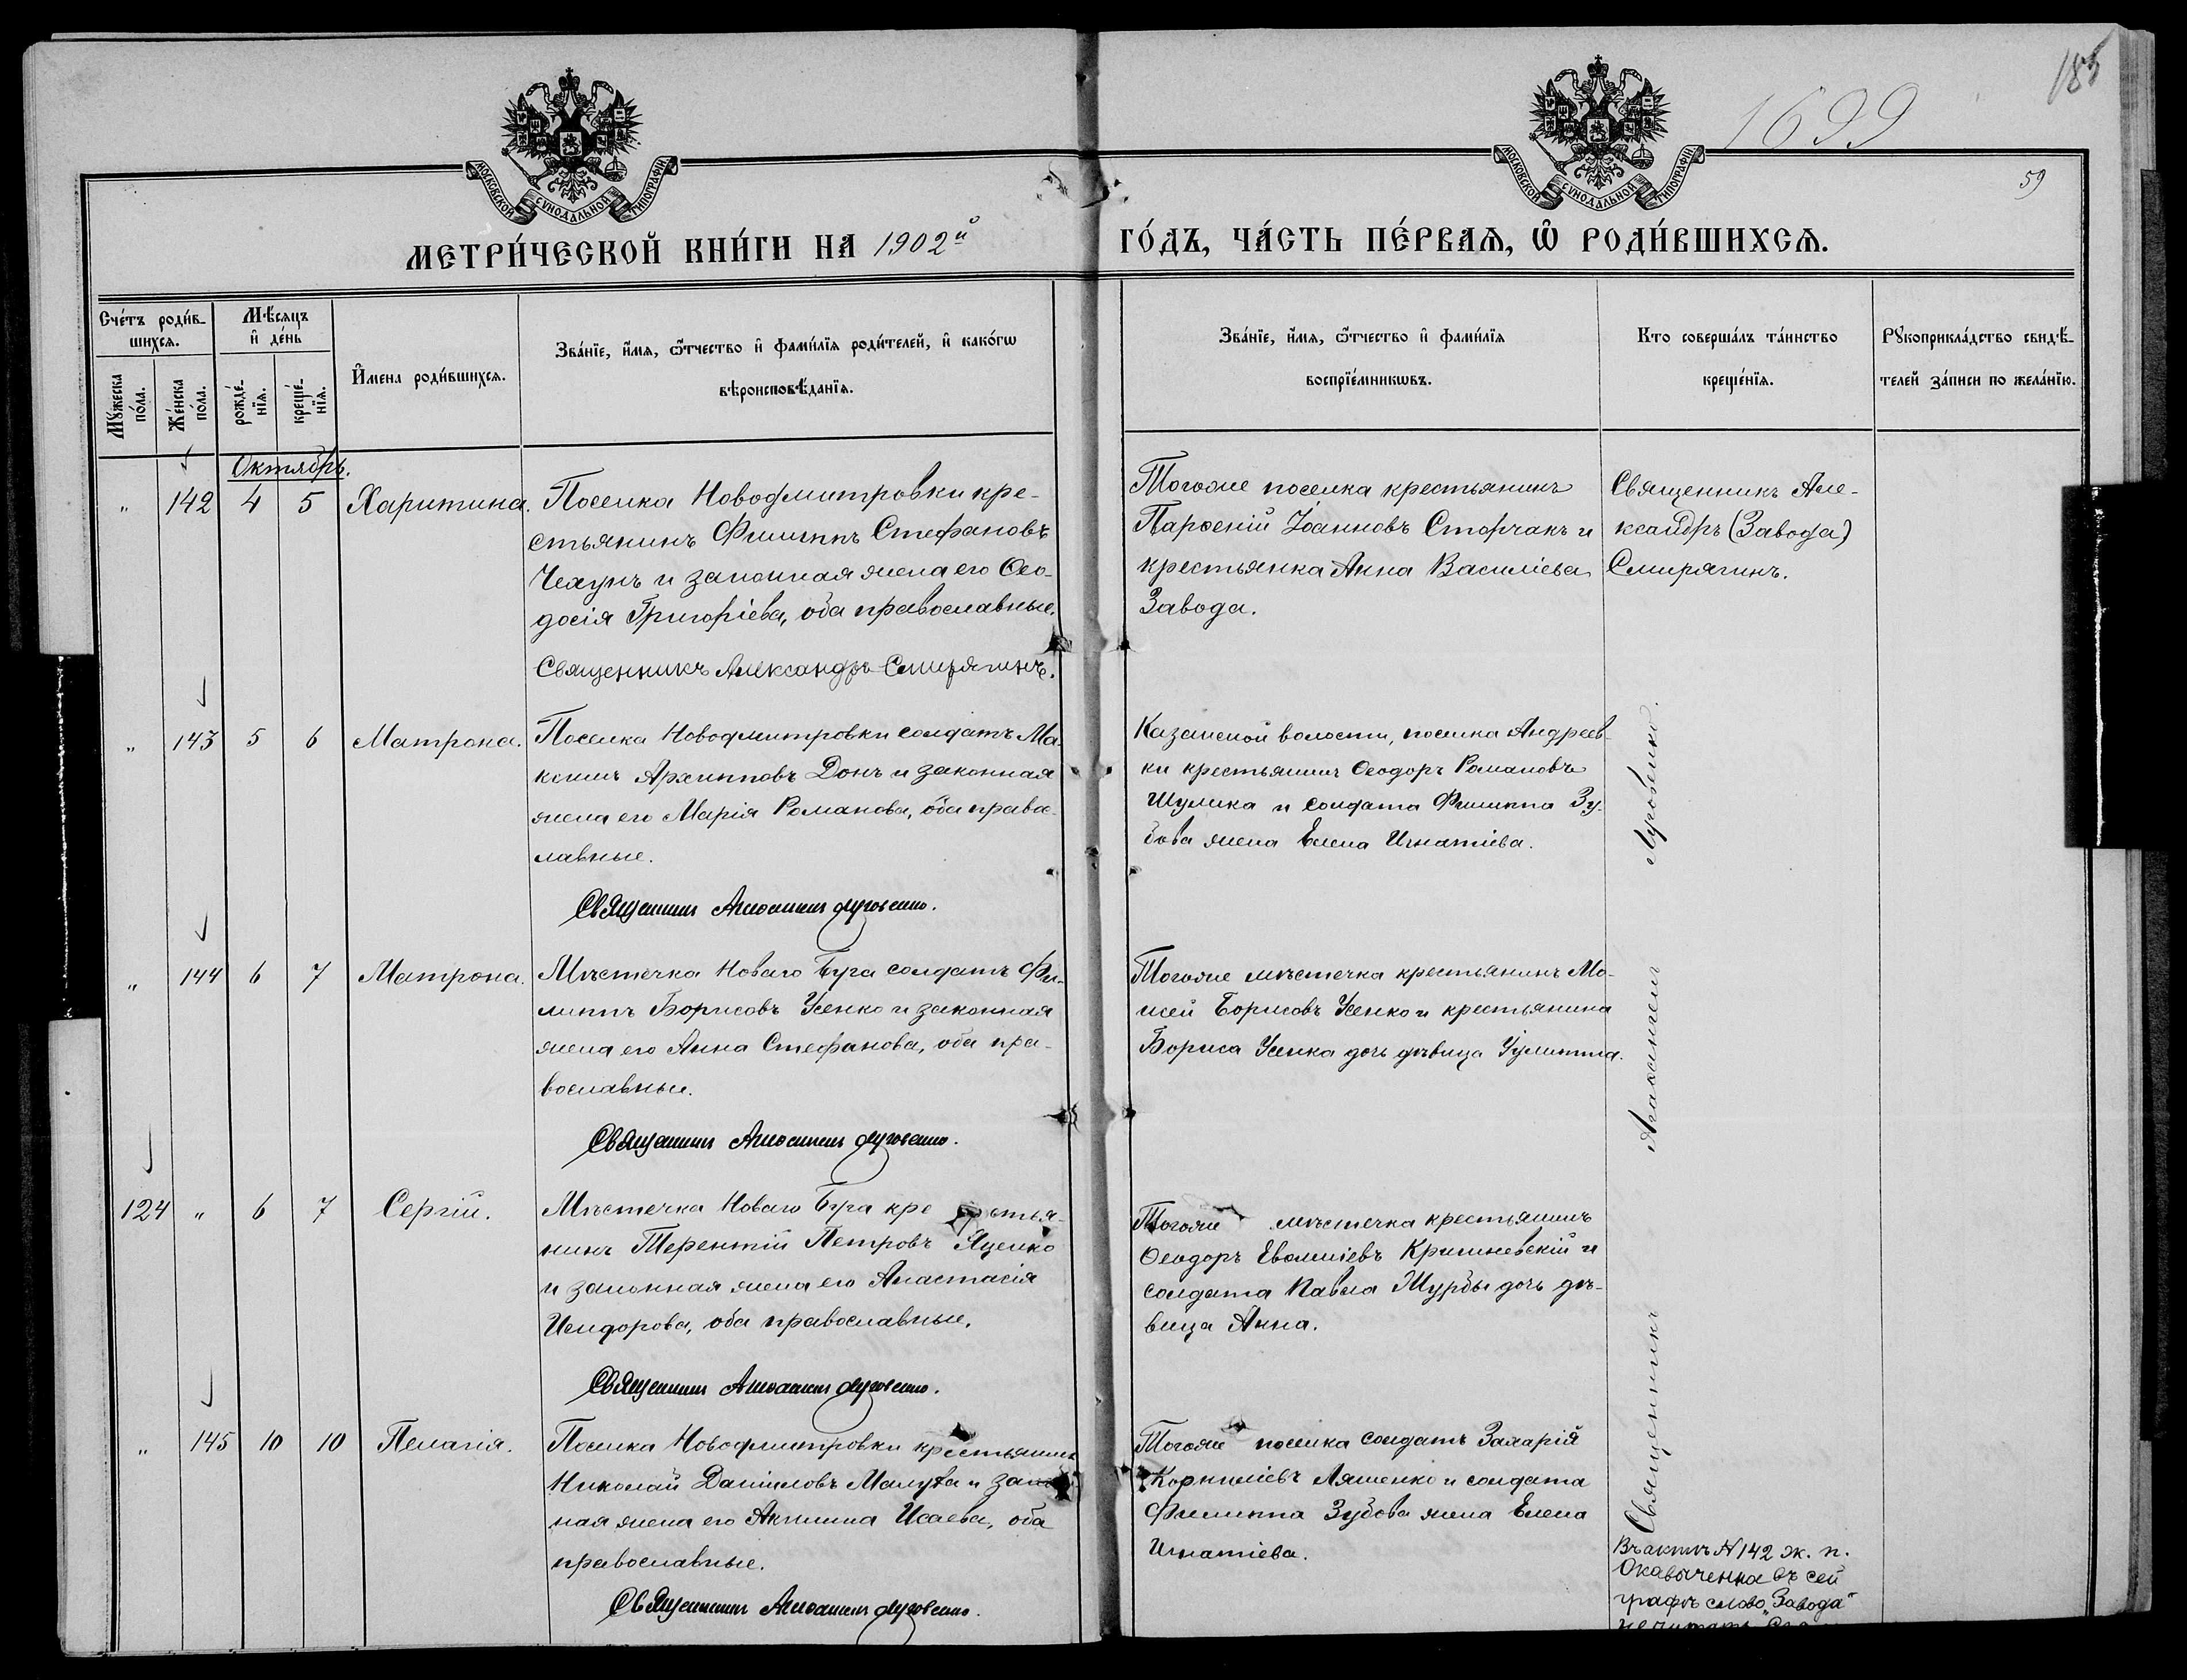 185
1699
59
МОСКОВСКОЙ СУНОДАЛЬНОЙ ТИПОГРАФІИ
МОСКОВСКОЙ СУНОДАЛЬНОЙ ТИПОГРАФІИ
МЕТРИ́ЧЕСКОЙ КНИ́ГИ НА 1902й
ГО́ДЪ, ЧА́СТЬ ПЕ́РВАѦ, Ѡ҆ РОДИ́ВШИХСѦ.
Сче́тъ роди́в-
шихсѧ.
Мѣ́сяцъ
и҆ де́нь
Мꙋ́жеска
по́ла.
Же́нска
по́ла.
рожде́-
нїѧ.
креще́-
нїѧ.
И҆мена роди́вшихсѧ.
Зва́нїе, и҆́мѧ, ѻ҆́тчество и҆ фами́лїѧ роди́телей, и҆ како́гѡ
вѣроисповѣ́данїѧ.
Зва́нїе, и҆́мѧ, ѻ҆́тчество и҆ фами́лїѧ
воспрїе́мникѡвъ.
Кто соверша́лъ та́инство
креще́нїѧ.
Рꙋкоприкла́дство свидѣ́-
телей за́писи по жела́нїю.
Октябрь.
" 142 4 5 Харитина.
Поселка Новодмитровки кре-
стьянинъ Филиппъ Стефановъ
Чехунъ и законная жена его Ѳео-
досія Григоріева, оба православные.
Священникъ Александръ Смирягинъ.
Тогоже поселка крестьянинъ
Парѳеній Іоанновъ Сторчакъ и
крестьянка Анна Василіева
Завода.
Священникъ Але-
ксандръ (Завода)
Смирягинъ.
" 143 5 6 Матрона.
Поселка Новодмитровки солдатъ Ма-
ксимъ Архипповъ Донъ и законная
жена его Марія Романова, оба право-
славные.
Священникъ Агаѳангелъ Луговенко.
Казанской волости, поселка Андреев-
ки крестьянинъ Ѳеодоръ Романовъ
Шулика и солдата Филиппа Зу-
бова жена Елена Игнатіева.
" 144 6 7 Матрона.
Мѣстечка Новаго Буга солдатъ Фи-
липпъ Борисовъ Усенко и законная
жена его Анна Стефанова, оба пра-
вославные.
Священникъ Агаѳангелъ Луговенко.
Тогоже мѣстечка крестьянинъ Мо-
исей Борисовъ Усенко и крестьянина
Бориса Усенка дочь дѣвица Іулитта.
124 " 6 7 Сергій.
Мѣстечка Новаго Буга кре стья-
нинъ Терентій Петровъ Яценко
и законная жена его Анастасія
Исидорова, оба православные.
Священникъ Агаѳангелъ Луговенко.
Тогоже мѣстечка крестьянинъ
Ѳеодоръ Кришневскій и
солдата Павла Шурбы дочь дѣ-
вица Анна.
" 145 10 10 Пелагія.
Поселка Новодмитровки крестьянинъ
Николай Даніиловъ Малута и закон-
ная жена его Акилина Исаева, оба
православные.
Священникъ Агаѳангелъ Луговенко.
Тогоже поселка солдатъ Захарій
Корниліевъ Ляшенко и солдата
Филиппа Зубова жена Елена
Игнатіева.
Священникъ Агаѳангелъ Луговенко.
Въ актѣ № 142 ж. п.
Окавыченна въ сей
графѣ слово „Завода"
не читать